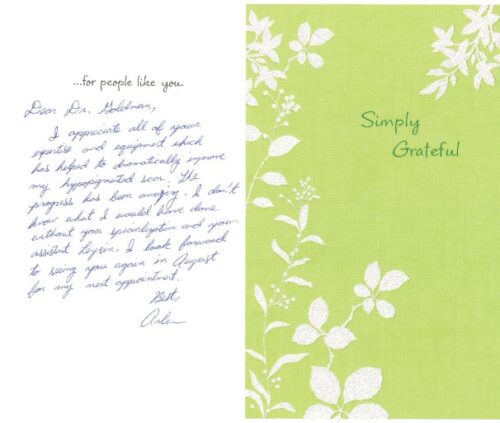 ...for people like you.
Dear Dr. Goldman,
I appreciate all of your
expertise and equipment which
has helped to dramatically improve
my hypopigmented scar. The
progress has been amazing. I don't
know what I would have done
without your specialization and your
assistant Leysin. I look forward
to seeing you again in August
for my next appointment.
Best,
Simply
Grateful